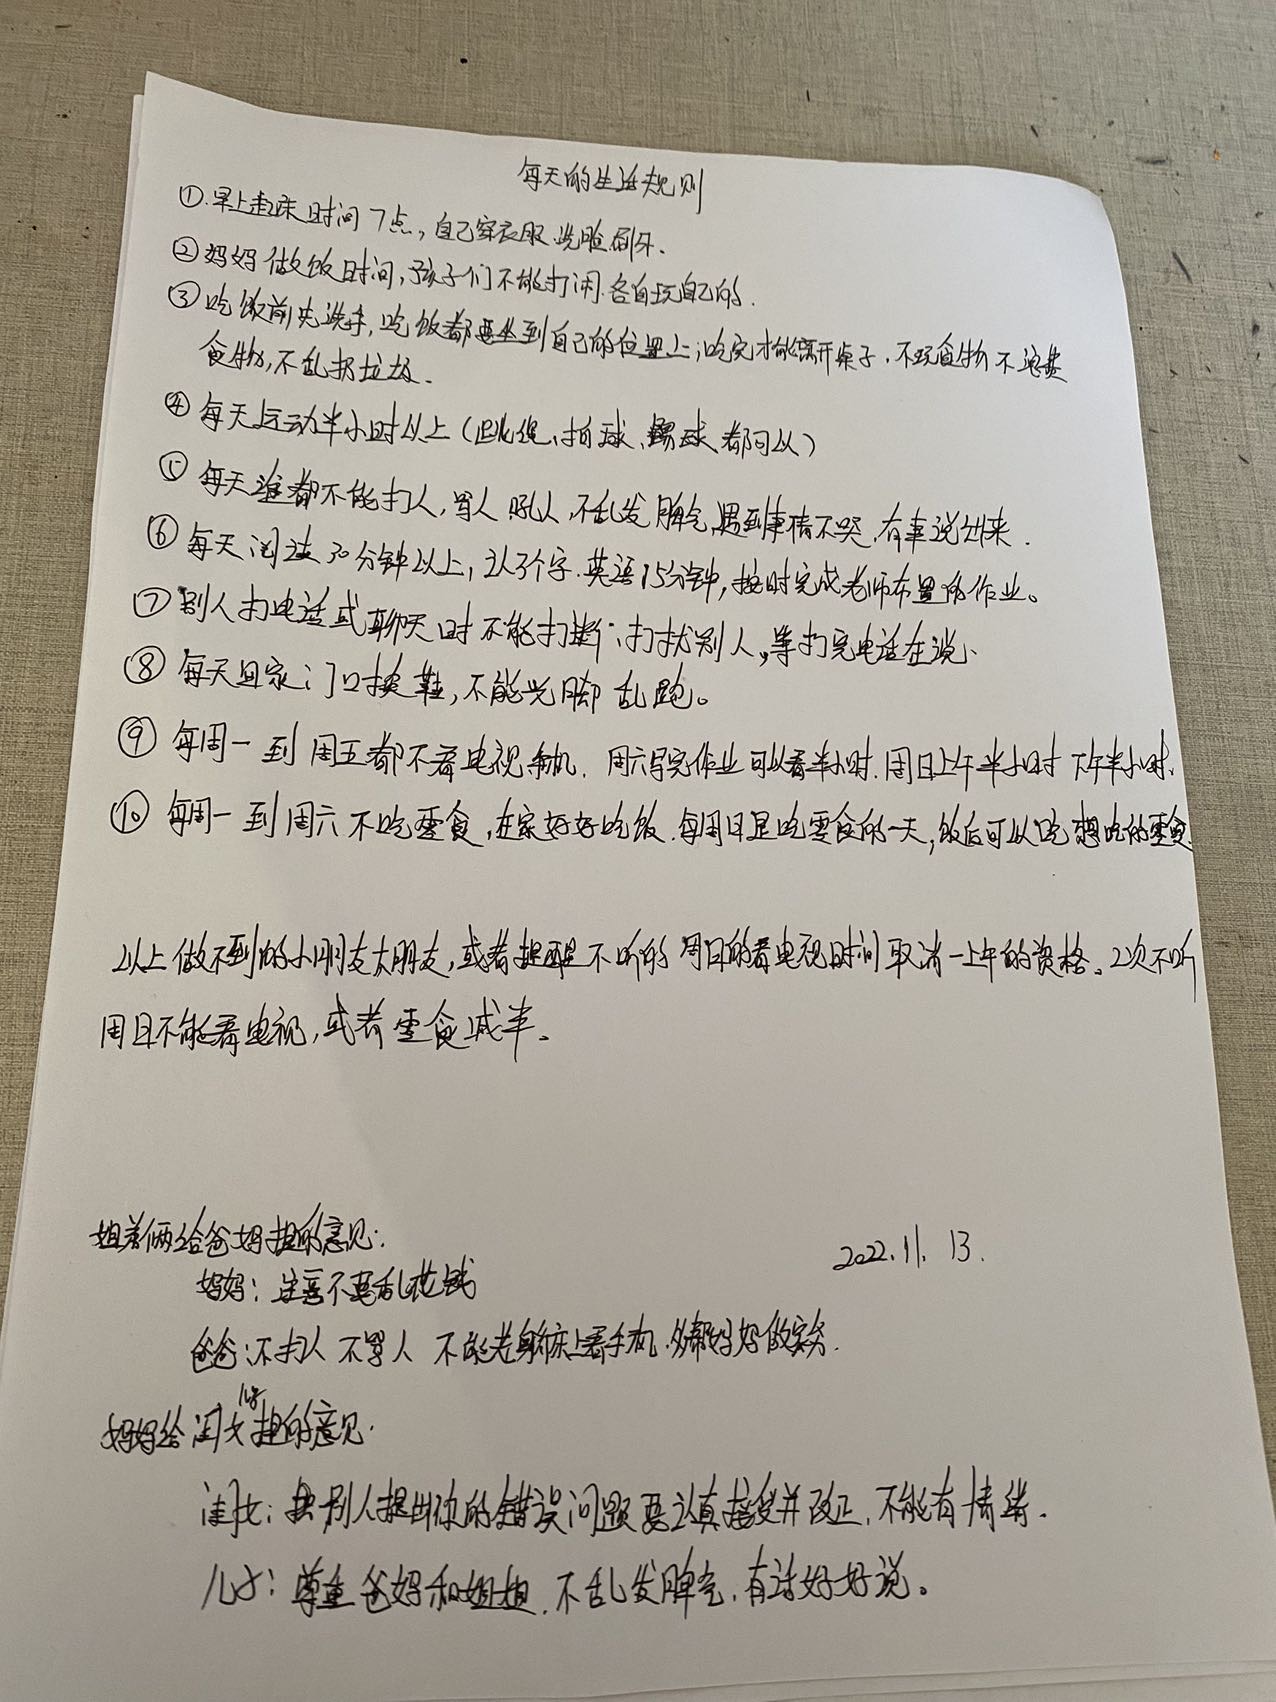 每天的生活规则
①.早上起床时间7点，自己穿衣服.洗脸刷牙.
②妈妈做饭时间，孩子们不能打闹.各自玩自己的.
③吃饭前先洗手，吃饭都要坐到自己的位置上；吃完才能离开桌子.不玩食物不浪费
食物，不乱扔垃圾.
④每天运动半小时以上(跳绳、拍球、踢球都可以)
⑤每天谁都不能打人，骂人吼人，不乱发脾气，遇到事情不哭.有事说出来.
⑥每天阅读30分钟以上，认3个字.英语15分钟，按时完成老师布置的作业。
⑦别人打电话或聊天时不能打断、打扰别人，等打完电话在说.
⑧每天回家门口换鞋，不能光脚乱跑。
⑨每周一到周五都不看电视手机.周六写完作业可以看半小时.周日上午半小时下午半小时.
⑩每周一到周六不吃零食，在家好好吃饭.每周日是吃零食的一天，饭后可以吃想吃的零食
以上做不到的小朋友大朋友，或者提醒不听的周日的看电视时间取消一上午的资格。2次不听
周日不能看电视，或者零食减半。
姐弟俩给爸妈提的意见：
2022.11.13.
妈妈：注意不要乱花钱
爸爸：不打人不骂人不能老躺床上看手机.多帮妈妈做家务.
妈妈给闺女儿子提的意见.
闺女：别人提出你的错误问题要认真接受并改正.不能有情绪.
儿子：尊重爸妈和姐姐.不乱发脾气.有话好好说。